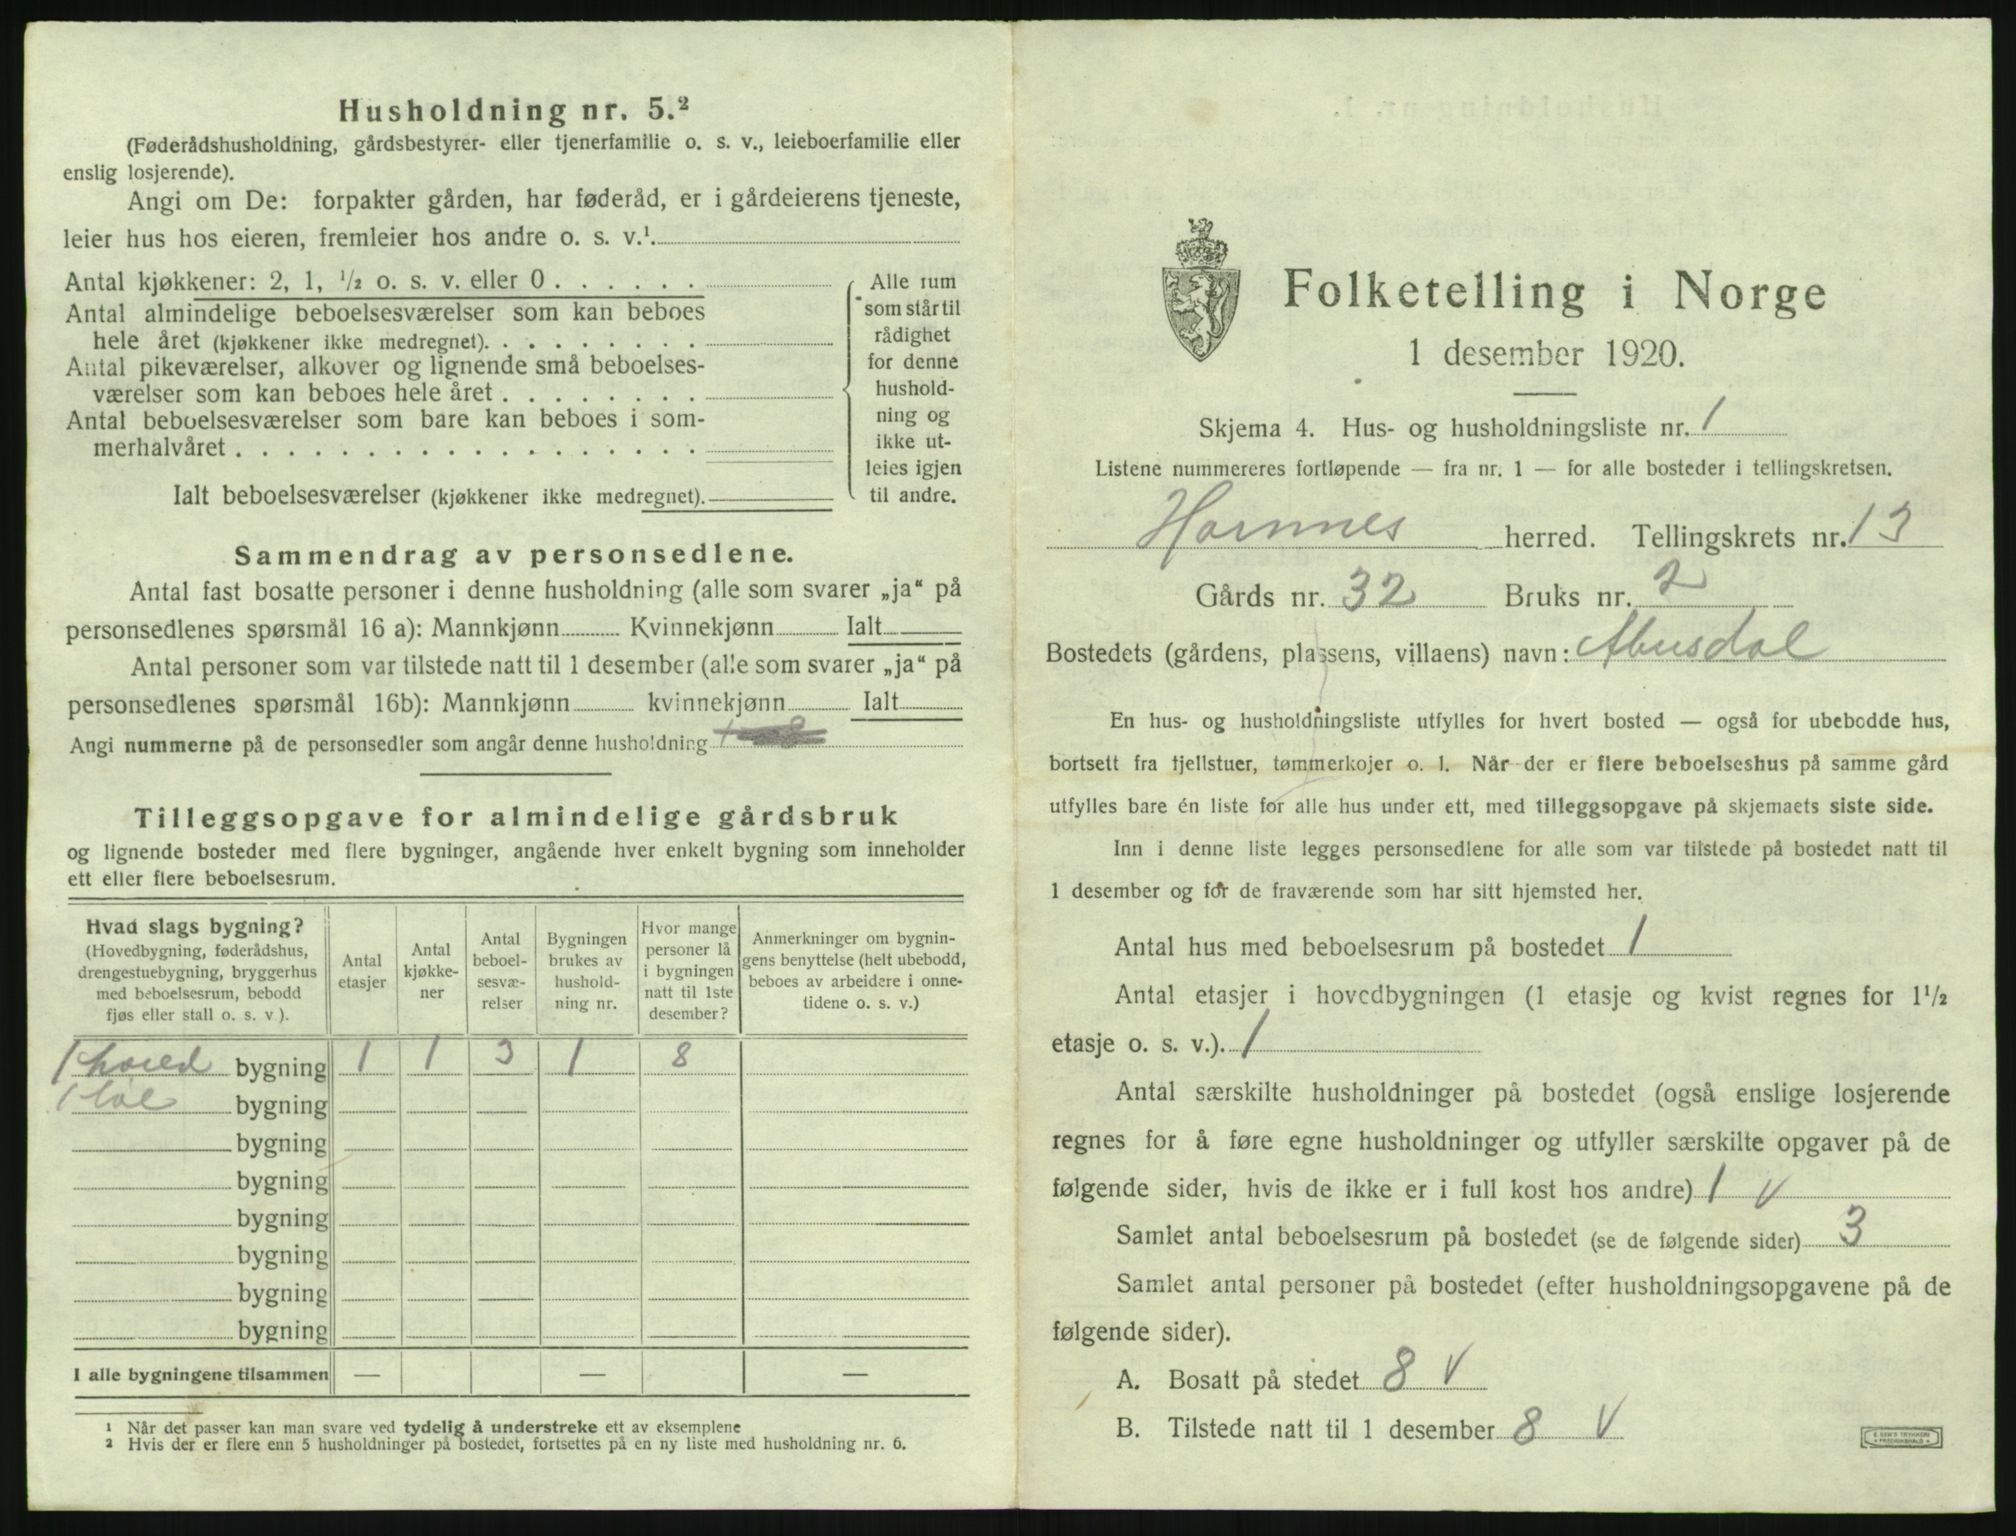 Husholdning nr. 5.²
(Føderådshusholdning, gårdsbestyrer- eller tjenerfamilie o. s. v., leieboerfamilie eller
enslig losjerende).
Angi om De: forpakter gården, har føderåd, er i gårdeierens tjeneste,
leier hus hos eieren, fremleier hos andre o. s. v.¹
Antal kjøkkener: 2, 1, ½ o. s. v. eller 0 . . . . . .
Antal almindelige beboelsesværelser som kan beboes
hele året (kjøkkener ikke medregnet). . . . . . . . .
Antal pikeværelser, alkover og lignende små beboelses-
værelser som kan beboes hele året . . . . . . . .
Antal beboelsesværelser som bare kan beboes i som-
merhalvåret . . . . . . . . . . . . . . . . . .
Ialt beboelsesværelser (kjøkkener ikke medregnet).
Alle rum
som står til
rådighet
for denne
hushold-
ning og
ikke ut-
leies igjen
til andre.
Sammendrag av personsedlene.
Antal fast bosatte personer i denne husholdning (alle som svarer „ja“ på
personsedlenes spørsmål 16 a): Mannkjønn Kvinnekjønn Ialt
Antal personer som var tilstede natt til 1 desember (alle som svarer „ja“ på
personsedlenes spørsmål 16b): Mannkjønn kvinnekjønn Ialt
Angi nummerne på de personsedler som angår denne husholdning
Tilleggsopgave for almindelige gårdsbruk
og lignende bosteder med flere bygninger, angående hver enkelt bygning som inneholder
ett eller flere beboelsesrum.
Hvad slags bygning?
(Hovedbygning, føderådshus,
drengestuebygning, bryggerhus
med beboelsesrum, bebodd
fjøs eller stall o. s. v.).
Antal
etasjer
Antal
kjøkke-
ner
Antal
beboel-
sesvæ-
relser
Bygningen
brukes av
hushold-
ning nr.
Hvor mange
personer lå
i bygningen
natt til 1ste
desember?
Anmerkninger om bygnin-
gens benyttelse (helt ubebodd,
beboes av arbeidere i onne-
tidene o. s. v.)
1 hoved bygning 1 1 3 1 8
1 løe bygning
bygning
bygning
bygning
bygning
bygning
bygning
I alle bygningene tilsammen — — —
¹ Når det passer kan man svare ved tydelig å understreke ett av eksemplene
² Hvis der er flere enn 5 husholdninger på bostedet, fortsettes på en ny liste med husholdning nr. 6.
Folketelling i Norge
1 desember 1920.
Skjema 4. Hus- og husholdningsliste nr. 1
Listene nummereres fortløpende — fra nr. 1 — for alle bosteder i tellingskretsen.
Hornnes herred. Tellingskrets nr. 13
Gårds nr. 32 Bruks nr. 2
Bostedets (gårdens, plassens, villaens) navn: Abusdal
En hus- og husholdningsliste utfylles for hvert bosted — også for ubebodde hus,
bortsett fra fjellstuer, tømmerkojer o. l. Når der er flere beboelseshus på samme gård
utfylles bare én liste for alle hus under ett, med tilleggsopgave på skjemaets siste side.
Inn i denne liste legges personsedlene for alle som var tilstede på bostedet natt til
1 desember og for de fraværende som har sitt hjemsted her.
Antal hus med beboelsesrum på bostedet 1
Antal etasjer i hovedbygningen (1 etasje og kvist regnes for 1½
etasje o. s. v.). 1
Antal særskilte husholdninger på bostedet (også enslige losjerende
regnes for å føre egne husholdninger og utfyller særskilte opgaver på de
følgende sider, hvis de ikke er i full kost hos andre) 1 v
Samlet antal beboelsesrum på bostedet (se de følgende sider) 3
Samlet antal personer på bostedet (efter husholdningsopgavene på de
følgende sider).
A. Bosatt på stedet 8 v
B. Tilstede natt til 1 desember 8 v